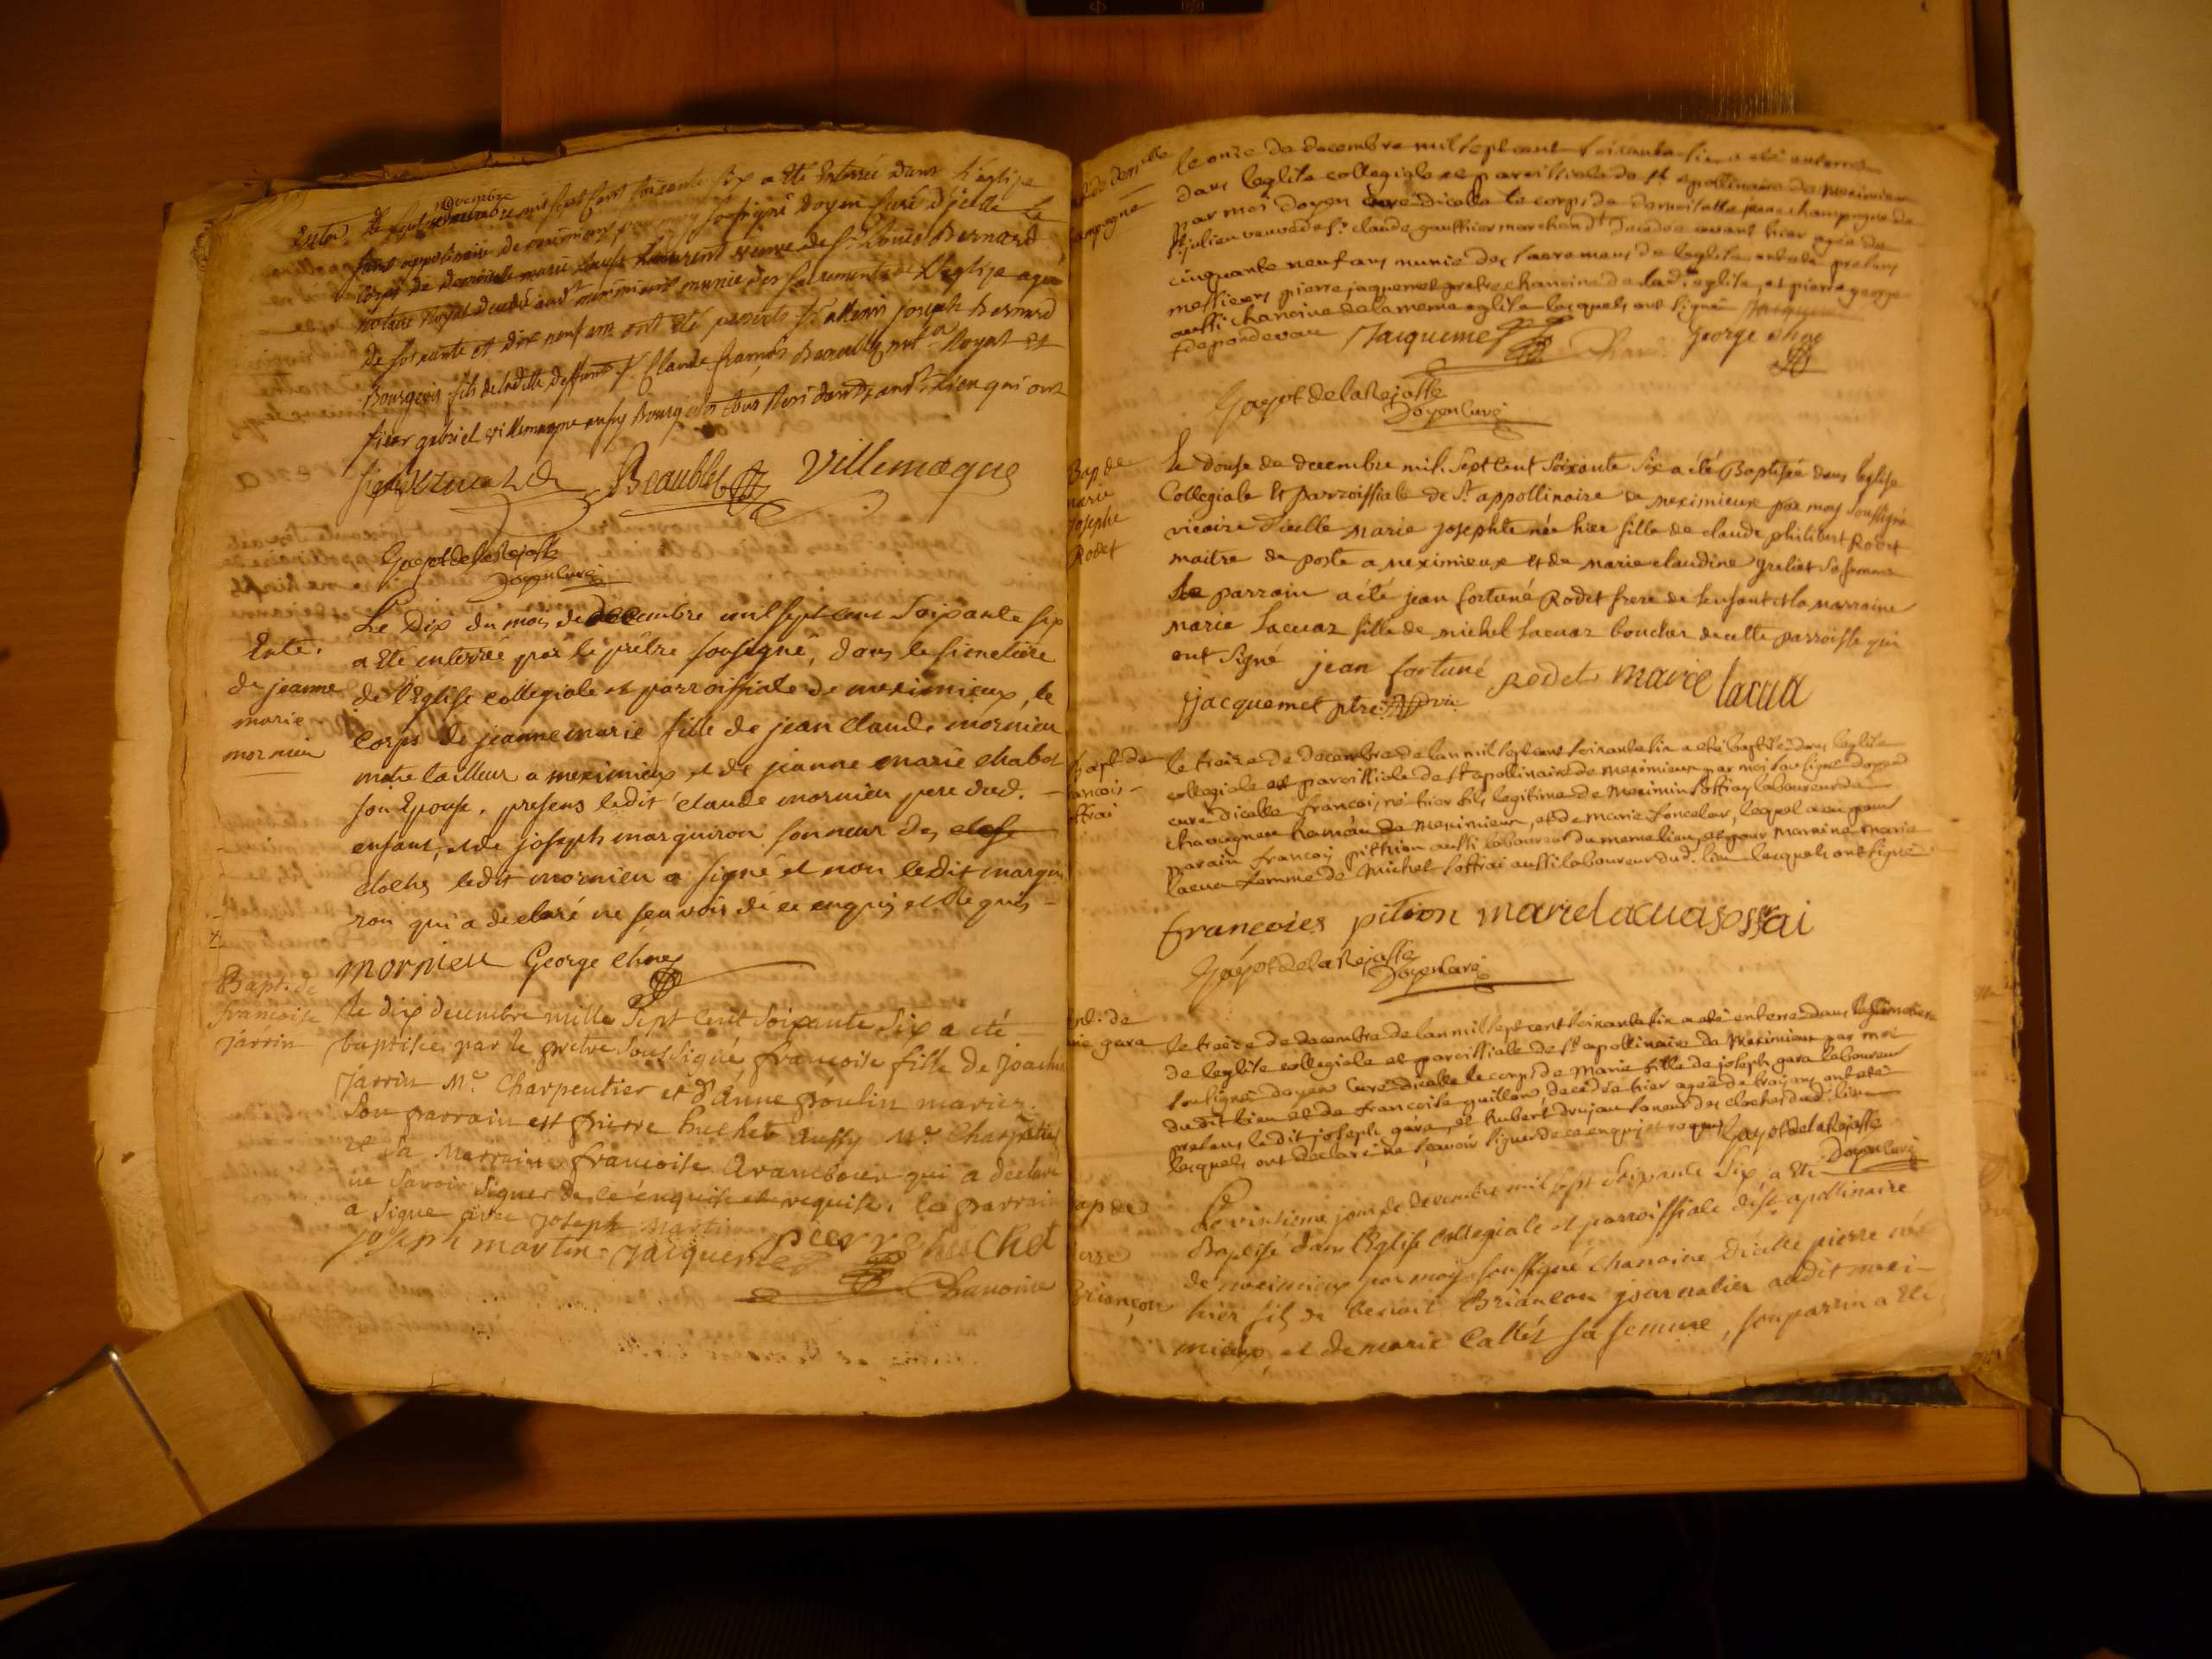 novembre
Le sept mil sept cent soixante six a Eté Enterrée dans L'eglise
de meximieux par moy soussigné Doyen Curé d'icelle Le
Corps de demoiselle marie veuve de Sr. Louis Bernard
notaire Royal decedé munie des sacrements de L'eglise agée
De soixante et dix neuf ans ont été presents joseph Bernard
Bourgeois fils de ladite deffunte Claude françois Royal et
sieur gabriel villemagne aussy Bourgeois tous Residants aud. Lieu qui ont
signé Beaublez Villemagne
Gayot de la Rejasse
Doyen Curé
Ente.
de jeanne
marie
mornieu
Le Dix du mois de decembre mil sept cent Soixante six
a Eté enterrée par le prêtre sousigné, dans le simetiere
de l'Eglise collegiale et parroissiale de meximieux, le
Corps de jeanne marie fille de jean claude mornieu
maitre tailleur a meximieux et de jeanne marie chabot
son Epouse. presens ledit claude mornieu pere dud.
enfant, et de joseph marguiron sonneur des
cloches ledit mornieu a signé et non ledit margui
ron qui a declaré ne sçavoir de ce enquis et Requis
mornieu George chne
Bapt. de
francoise
jarrin
Le dix decembre mille Sept Cent Soixante Six a eté
baptisée par le pretre Soussigné, francoise fille de joachim
jarrin Me. Charpentier et d'anne poulin mariés.
Son parrain est pierre huchet aussy Me. Charpentier
et Sa Marraine francoise Arambour qui a declaré
ne Savoir Signer de ce enquise et requise. le parrain
a Signe avec joseph Martin
joseph martin jacquemet pierre huchet
Chanoine
Demlle
le onze de decembre mil sept cent soixante six a eté enterrée
dans leglise collegiale et paroissiale de st apollinaire de meximieux
par moi doyen curé dicelle le corps de demoiselle jeane champagne de
st julien veuve de sr. claude gauthier marchand decedée avant hier agée de
cinquante neuf ans munie des sacremens de leglise ont eté presens
messieurs pierre jaquemet pretre chanoine de ladte eglise, et pierre george
aussi chanoine de la meme eglise lesquels ont signé
Jacquemet George chne
Gayot de la Rejasse
Doyen Curé
Bap. de
marie
josephe
Rodet
Le douse de decembre mil Sept Cent Soixante Six a été Baptisée dans leglise
Collegiale et parroissiale de St appollinaire de meximieux par moy soussigné
vicaire d'icelle Marie josephte née hier fille de claude philibert Rodet
maitre de poste a meximieux et de marie claudine greliet sa femme
Le parrain a été jean fortuné Rodet frere de lenfant et la marraine
marie Lacuaz fille de michel Lacuaz boucher de cette parroisse qui
ont Signé jean fortuné Rodet marie lacua
Jacquemet ptre vic
bapt. de
francois
le treize de decembre de lan mil sept cent soixante six a eté baptisé dans leglise
collegiale et paroissiale de st apollinaire de meximieux par moi soussigné doyen
curé dicelle francois né hier fils legitime de meximin soffrai laboureur de
chavagneu hameau de meximieux, et de marie, lequel a eu pour
parain francois pithion aussi laboureur du meme lieu, et pour marraine marie
lacua femme de michel soffrai aussi laboureur dud. lieu lesquels ont signé
francoies pition marie lacua sossrai
Gayot de la Rejasse
Doyen Curé
ent. de
marie gara
le treize de decembre de lan mil sept cent soixante six a eté enterré dans le simetiere
de leglise collegiale et paroissiale de st apollinaire de meximieux par moi
soussigné doyen curé dicelle le corps de marie fille de joseph gara laboureur
dudit lieu et de francoise guillon, decedée hier agée de trois ans ont eté
presens ledit joseph gara, et hubert drujon soneur des cloches dud. lieu
lesquels ont declaré ne sçavoir signer de ce enquis et requis Gayot de la Rejasse
Doyen Curé
Bap de
pierre
Briançon
Le vintieme jour de decembre mil sept Soixante Six a Eté
Baptisé dans l'Eglise Collegiale et parroissiale de st apollinaire
de meximieux par moy soussigné chanoine d'icelle pierre né
hier fils de benoit Briançon journalier audit mexi-
mieux, et de marie Callet sa femme, son parrin a Eté